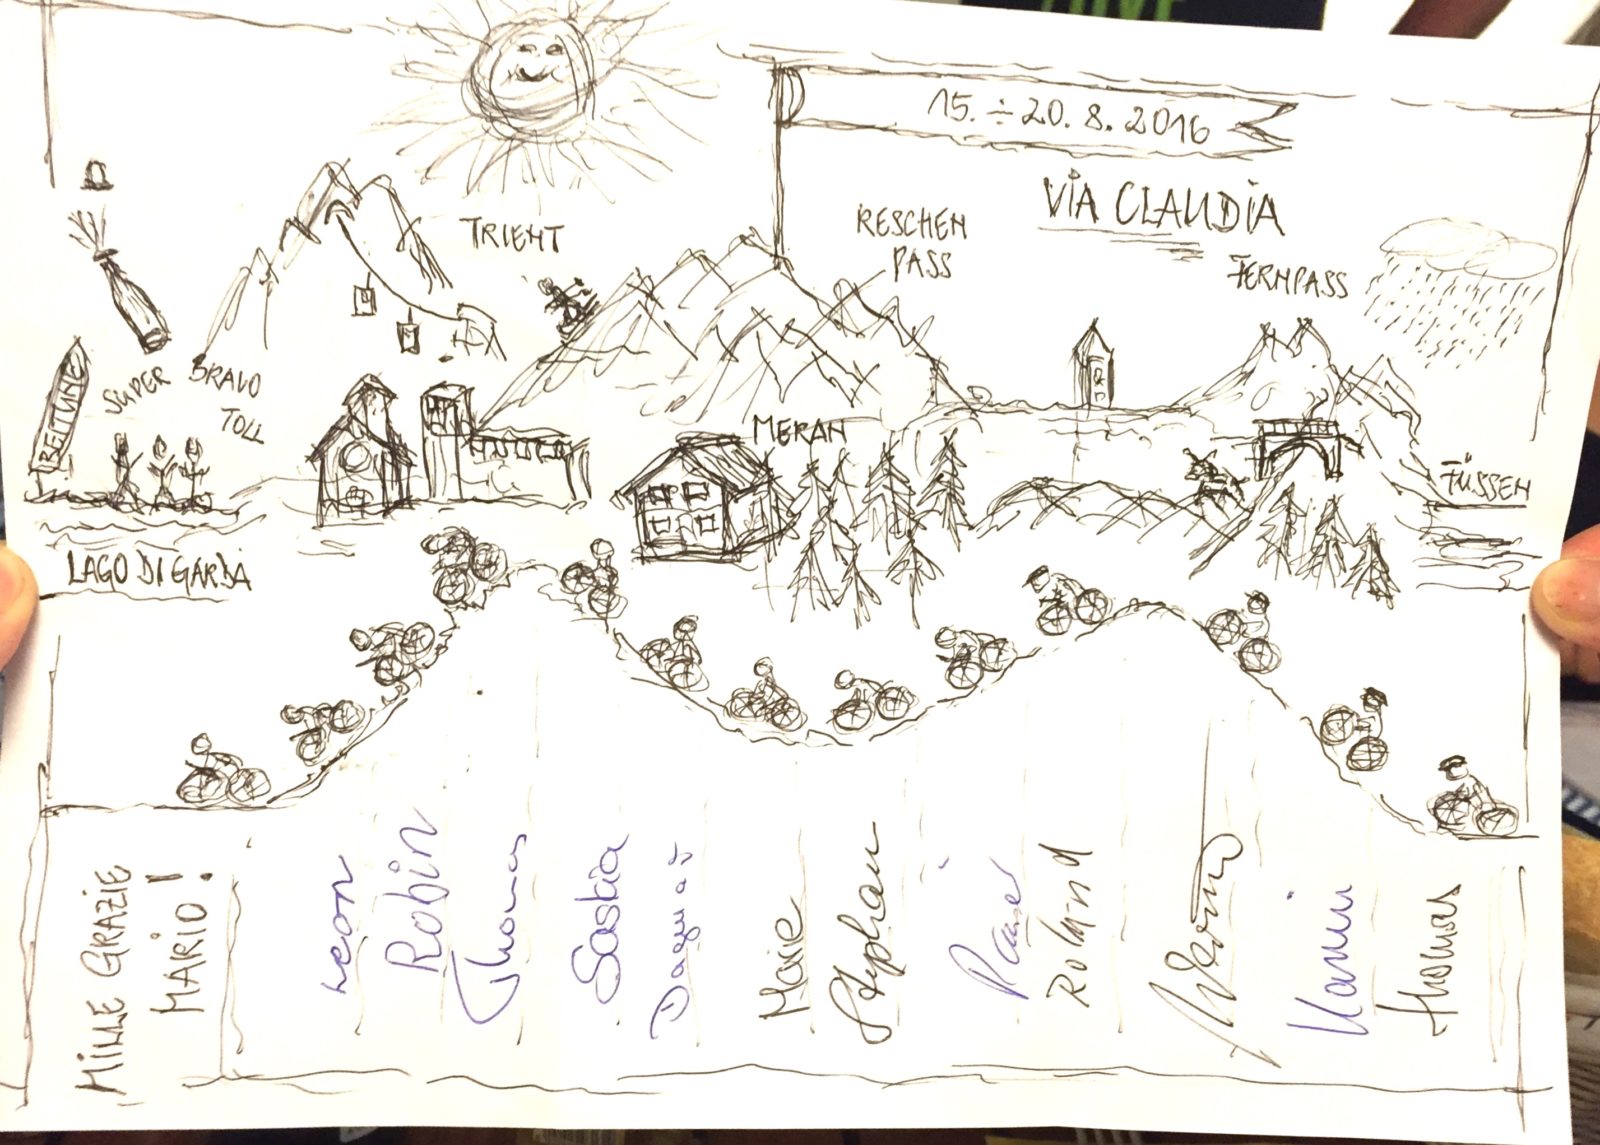 15. ÷ 20. 8. 2016
VIA CLAUDIA
TRIENT
RESCHEN
PASS
FERNPASS
SUPER
BRAVO
TOLL
MERAN
FÜSSEN
LAGO DI GARDA
MILLE GRAZIE
MARIO!
Leon
Robin
Thomas
Saskia
Dagmar
Marie
Stephan
Roland
Werner
Thomas